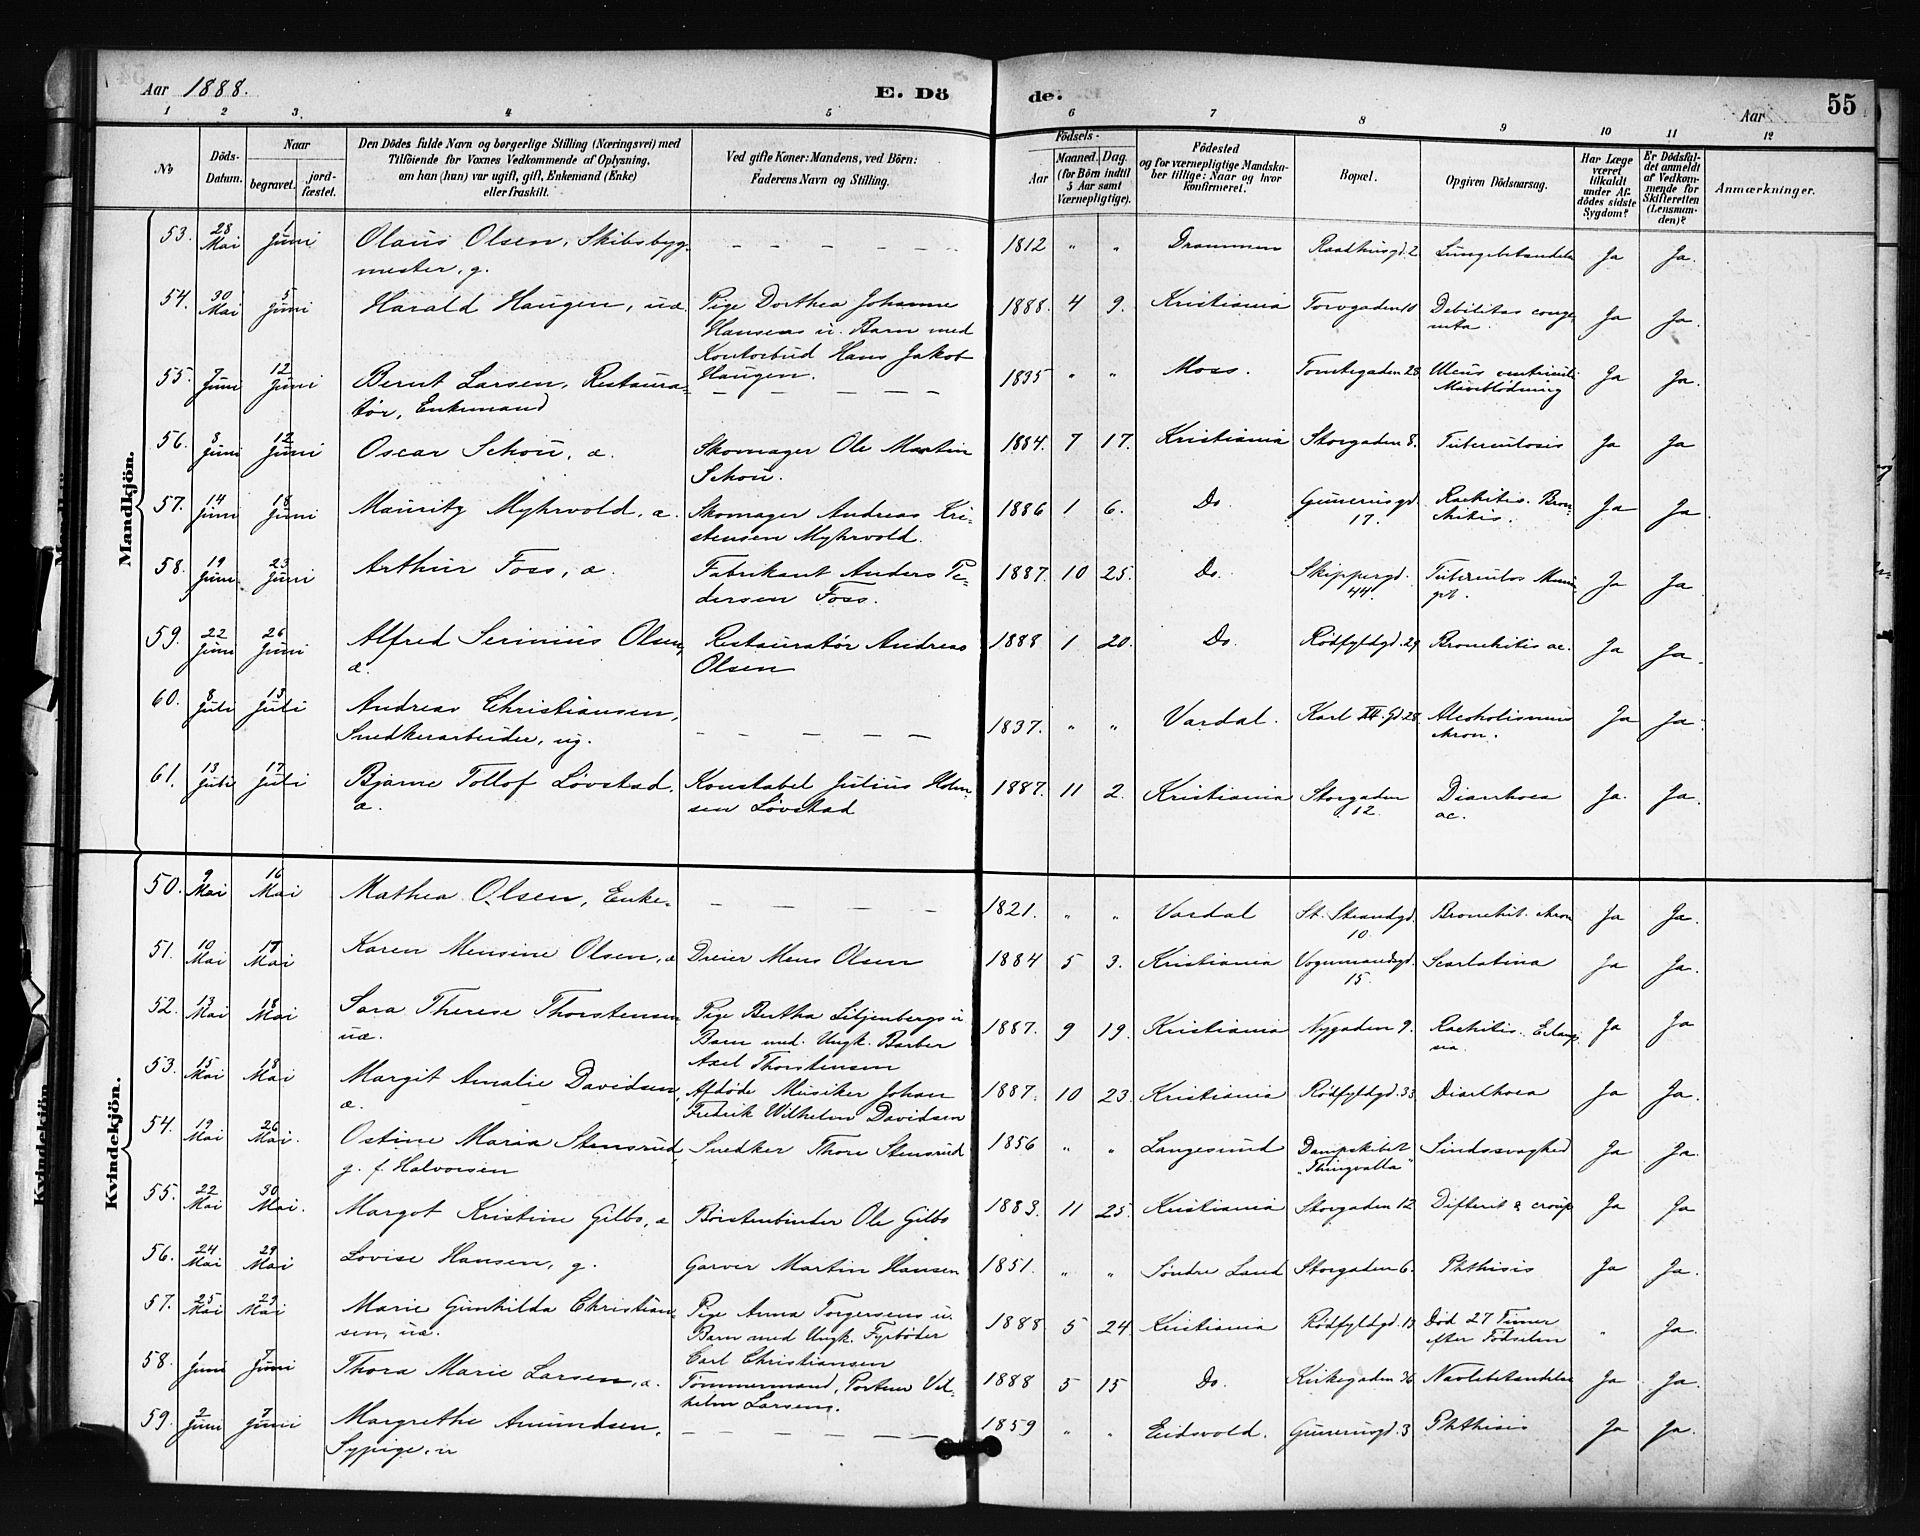 Aar 1888. E. Dö de. Aar 55
1 2 3. 4 5 6 7 8 9 10 11 12
No
Döds-Datum.
Naar
begravet.
jord-fæstet.
Den Dödes fulde Navn og borgerlige Stilling (Næringsvei) med
Tilföiende for Voxnes Vedkommende af Oplysning,
om han (hun) var ugift, gift, Enkemand (Enke)
eller fraskilt.
Ved gifte Koner: Mandens, ved Börn:
Faderens Navn og Stilling.
Födsels-
Aar
Maaned. Dag.
(for Börn indtil
5 Aar samt
Værnepligtige).
Födested
og for værnepligtige Mandska-
ber tillige: Naar og hvor
konfirmeret.
Bopæl.
Opgiven Dödsaarsag.
Har Læge
været
tilkaldt
under Af-
dödes sidste
Sygdom?
Er Dödsfal-
det anmeldt
af Vedkom-
mende for
Skifteretten
(Lensman-
den)?
Anmærkninger.
Mandkjön.
53. 28 Mai 1 Juni Olaus Olsen, Skibsbyg- — — — — — 1812 " " Drammen Raadhusgd. 2 Lungebetændelse Ja Ja.
mester, g.
54. 30 Mai 5 Juni Harald Haugen, uæ. Pige Dorthea Johanne 1888. 4 9. Kristiania Torvgaden 10 Debilitas conge- Ja Ja.
Hansens u. Barn med nita.
Kontorbud Hans Jakob
Haugen.
55. 7 Juni 12 Juni Bernt Larsen, Restaura- — — — — — 1835 " " Moss. Tomtegaden 28 Ulcus ventriculi Ja Ja.
tör, Enkemand Maveblödning
56. 8 Juni 12 Juni Oscar Schou, æ. Skomager Ole Martin 1884. 7 17. Kristiania Storgaden 8. Tuberculosis Ja Ja
Schou.
57. 14 Juni 18 Juni Mauritz Myhrvold, æ. Skomager Andreas Kri- 1886 1 6. Do. Gunerusgd. Rachitis. Bron- Ja Ja
stensen Myhrvold. 17. chitis.
58. 19 Juni 23 Juni Arthur Foss, æ. Fabrikant Anders Pe- 1887. 10 25. Do. Skippergd. Tuberculos Menin- Ja Ja.
dersen Foss. 44.
59. 22 Juni 26 Juni Alfred Serinius Olsen, Restauratör Andreas 1888 1 20. Do. Rödfyldgd. 29 Bronchitis ac. Ja Ja.
æ. Olsen
60. 8 Juli 13 Juli Andreas Christiansen, — — — — — 1837. " " Vardal. Karl XII. Gd 28 Alcoholismus Ja Ja.
Snedkerarbeider, ug. chron.
61. 13 Juli 17 Juli Bjarne Tollof Lövstad, Konstabel Julius Holm- 1887. 11 2. Kristiania Storgaden Diarrhoea Ja. Ja.
æ. sen Lövstad 12 ac.
Kvindekjön.
50. 9 Mai 16 Mai Mathea Olsen, Enke. — — — — 1821. " " Vardal St. Strandgd. Bronchit. chron Ja Ja.
10
51. 10 Mai 17 Mai Karen Mensine Olsen, æ Dreier Mens Olsen 1884 5 3. Kristiania Vognmandsgd. Scarlatina Ja Ja.
15
52. 13 Mai 18 Mai Sara Therese Thorstensen Pige Bertha Liljenbergs u 1887. 9 19. Kristiania Nygaden 9. Rachitis. Eclamp- Ja Ja
uæ. Barn med. Ungk. Barber sia.
Axel Thorstensen
53. 15 Mai 18 Mai Margit Amalie Davidsen, Afdöde Musiker Johan 1887. 10 23. Kristiania Rödfyldgd. 33 Diarrhoea Ja Ja.
æ. Fredrik Wilhelm Davidsen
54. 19 Mai 26 Mai. Ostine Maria Stensrud, Snedker Thore Stensrud 1856 " " Langesund Dampskibet Sindssvaghed Ja Ja.
g. f. Halvorsen "Thingvalla"
55. 22 Mai 30 Mai. Margot Kristine Gilbo, æ Börstenbinder Ole Gilbo 1883. 11 25. Kristiania Storgaden 12 Difterit & croup Ja Ja
56. 24 Mai 29 Mai Lovise Hansen, g. Garver Martin Hansen 1851. " " Söndre Land Storgaden 6. Phthisis Ja Ja.
57. 25 Mai 29 Mai Marie Gunhilda Christian- Pige Anna Torgersens u. 1888 5 24 Kristiania Rödfyldgd. 13 Död 27 Timer " Ja.
sen, uæ. Barn med Ungk. Fyrböder efter Födselen
Carl Christiansen
58. 1 Juni 7 Juni Thora Marie Larsen, æ. Tömmermand, Vil- 1888 5 15 Do. Kirkegaden 36 Navlebetændelse Ja Ja.
helm Larsens.
59. 2 Juni 7 Juni Margrethe Amundsen, — — — — — 1859 " " Eidsvold. Gunerusgd. 3 Phthisis Ja Ja.
Sypige, u